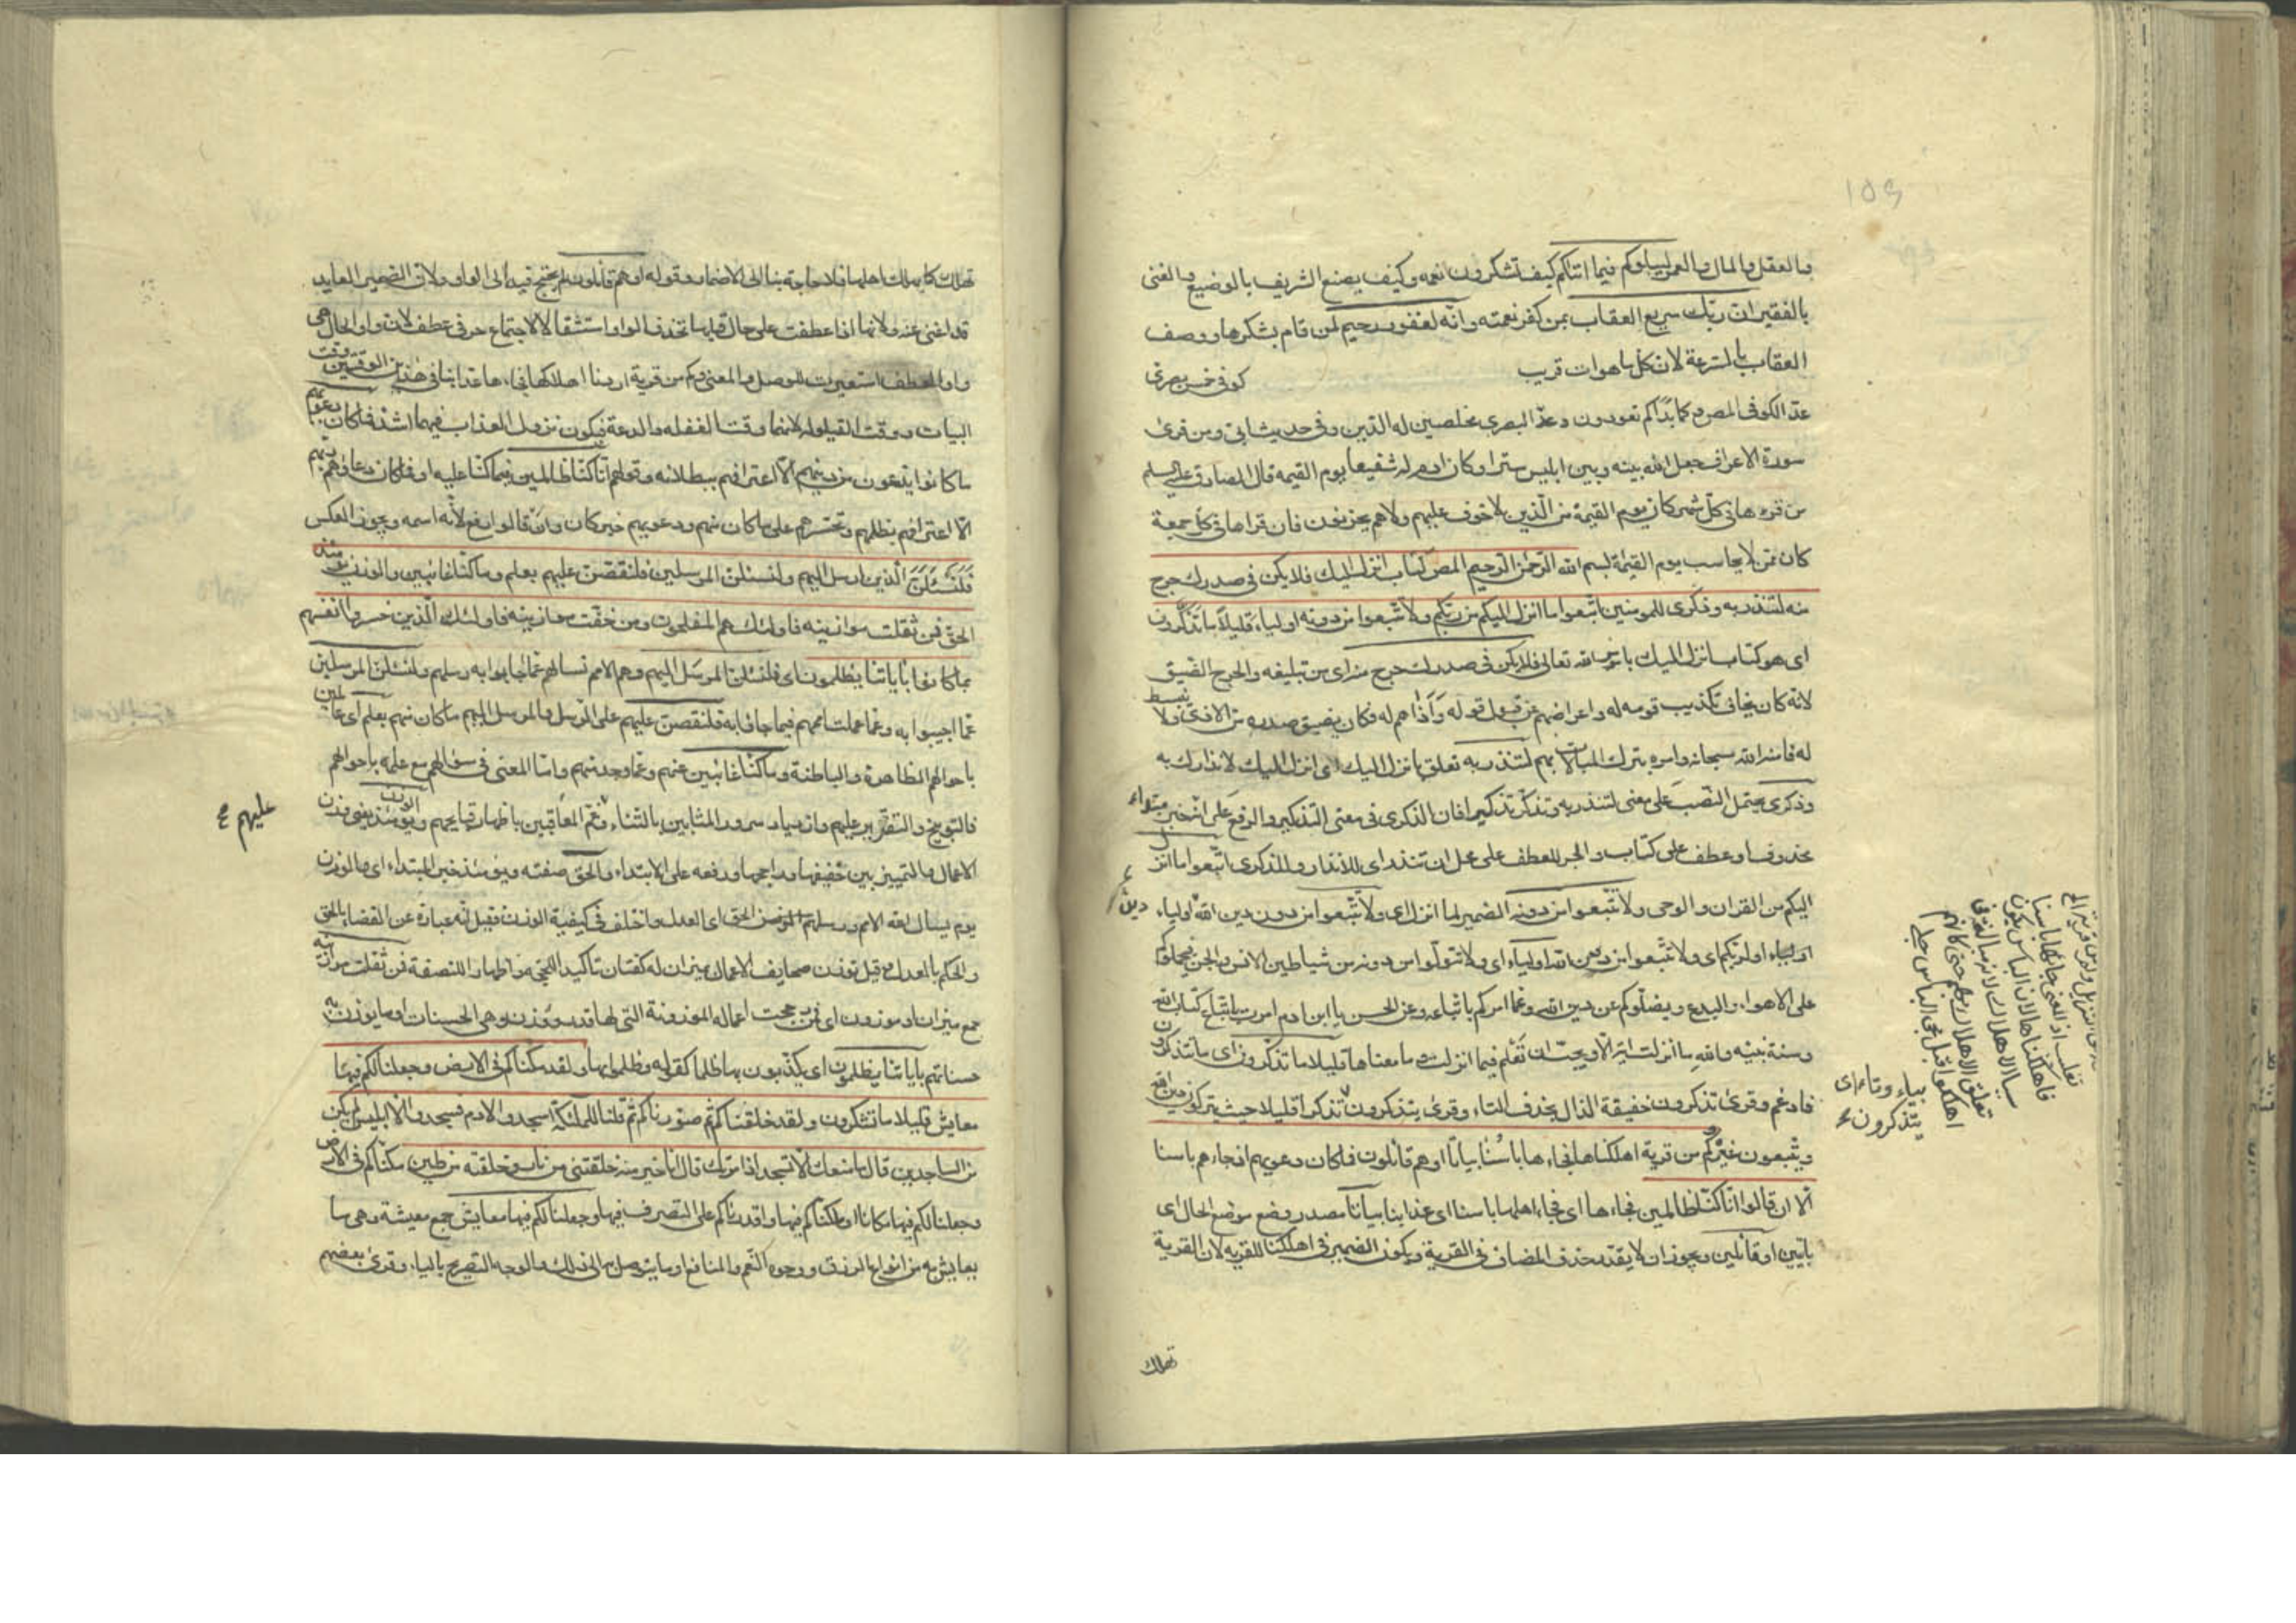 والعقل والمال والعمر ليبلوكم فيما اتاكم كيف تشكرون نعمه وكيف يصنع الشريف بالوضيع والغنى
بالفقير ان ربك سريع العقاب بمن كفر نعمته وانه لغفور رحيم لمن قام بشكرها ووصف
العقاب بالسرعة لان كل ما هو ات قريب
كوفى خمس بصرى
عدّ الكوفى المص وكما بدأكم تعودون وعدّ البصرى مخلصين له الدين وفى حديث ابى ومن قرئ
سورة الاعراف جعل الله بينه وبين ابليس سترا وكان ادم له شفيعا يوم القيمة قال الصادق عليه السلم
من قرء ها فى كل شهر كان يوم القيمة من الذين لا خوف عليهم ولا هم يحزنون فان قراها فى كل جمعة
كان ممن لا يحاسب يوم القيمة بسم الله الرحمن الرحيم المص كتاب انزل اليك فلا يكن فى صدرك حرج
منه لتنذر به وذكرى للمومنين اتبعوا ما انزل اليكم من ربكم ولا تتبعوا من دونه اولياء قليلا ما تذكرون
اى هو كتاب انزل اليك بامر الله تعالى فلا يكن فى صدرك حرج منه اى من تبليغه والحرج الضيق
لانه كان يخاف تكذيب قومه له واعراضهم عن قبول قوله وأذاهم له فكان يضيق صدره من الاذى ولا ينبسط
له فامنه الله سبحانه وامره بترك المبالات بهم لتنذر به تعلق بانزل اليك اى انزل اليك لانذارك به
وذكرى يحتمل النصب على معنى لتنذر به وتذكر تذكيرا فان الذكرى فى معنى التذكير والرفع على انه خبر مبتداء
محذوف او عطف على كتاب والجر للعطف على محل ان تنذر اى للانذار وللذكرى اتبعوا ما انزل
اليكم من القران والوحى ولا تتبعوا من دونه الضمير لما انزل اى ولا تتبعوا من دون دين الله اولياء
دين
او لربكم اى ولا تتبعوا من دون الله اولياء اى ولا تتولوا من دونه من شياطين الانس والجن فيحملوكم
على الاهواء والبدع ويضلوكم عن دين الله وعما امركم باتباعه وعن الحسن يا ابن ادم امرت باتباع كتاب الله
وسنة نبيه والله ما انزلت اية الا ويحب ان تعلم فيما انزلت وما معناها قليلا ما تذكرون اى ما تتذكرون
فادغم وقرئ تذكرون خفيفة الذال بحذف التاء وقرئ يتذكرون تذكرا قليلا حيث تتركون دين الله
بياء وتاء اى
يتذكرون
وتتبعون غيره وكم من قرية اهلكناها فجاءها باسنا بياتا او هم قائلون فما كان دعويهم اذ جاءهم باسنا
الا ان قالوا انا كنا ظالمين فجاءها اى فجاء اهلها باسنا اى عذابنا بياتا مصدر وضع موضع الحال اى
بائتين او قائلين ويجوز ان لا يقدر حذف المضاف فى القرية ويكون الضمير فى اهلكنا للقرية لان القرية
تهلك
تهلك كما يهلك اهلها فلا حاجة بنا الى الاضمار وقوله او هم قائلون لم يحتج فيه الى الواو ولان الضمير العايد
قد اغنى عنه ولانها اذا عطفت على حال قبلها تحذف الواو استثقالا لاجتماع حرفى عطف لان واو الحال هى
واو العطف استعيرت للوصل والمعنى وكم من قرية اردنا اهلاكها فجاءها عذابنا فى هذين الوقتين وقت
البيات ووقت القيلولة لانهما وقتا الغفله والدعة فيكون نزول العذاب فيهما اشد فما كان دعويهم
ما كانوا يدعون من دينهم الا اعترافهم ببطلانه وقولهم انا كنا ظالمين فيما كنا عليه او فما كان دعاؤهم ربهم
الا اعترافهم بظلمهم وتحسرهم على ما كان منهم ودعويهم خبر كان وان قالوا رفع لانه اسمه ويجوز العكس
فلنسئلن الذين ارسل اليهم ولنسئلن المرسلين فلنقصن عليهم بعلم وما كنا غائبين والوزن يومئذ
الحق فمن ثقلت موازينه فاولئك هم المفلحون ومن خفت موازينه فاولئك الذين خسروا انفسهم
بما كانوا باياتنا يظلمون اى فلنسئلن المرسل اليهم وهم الامم نسالهم عما اجابوا به رسلهم ولنسئلن المرسلين
عما اجيبوا به وعما عملت اممهم فيما جاؤا به فلنقصن عليهم على الرسل والمرسل اليهم ما كان منهم بعلم اى عالمين
باحوالهم الظاهرة والباطنة وما كنا غائبين عنهم وعما وجد منهم واما المعنى فى سؤالهم مع علمه باحوالهم
فالتوبيخ والتقرير عليهم وازدياد سرور المثابين بالثناء وغم المعاقبين باظهار قبايحهم والوزن يومئذ يعنى وزن
عليهم
الاعمال والتمييز بين خفيفها وراجحها ورفعه على الابتداء والحق صفته ويومئذ خبر المبتداء اى والوزن
يوم يسال الله الامم ورسلهم الوزن الحق اى العدل واختلف فى كيفية الوزن فقيل انه عبارة عن القضاء بالحق
والحكم بالعدل وقيل توزن صحايف الاعمال بميزان له كفتان تاكيدا للحجة واظهارا للنصفة فمن ثقلت موازينه
جمع ميزان او موزون اى فمن رجحت اعماله الموزونة التى لها قدر ووزن وهى الحسنات او ما يوزن به
حسناتهم باياتنا يظلمون اى يكذبون بها ظلما كقوله فظلموا بها ولقد مكناكم فى الارض وجعلنا لكم فيها
معايش قليلا ما تشكرون ولقد خلقناكم ثم صورناكم ثم قلنا للملئكة اسجدوا لادم فسجدوا الا ابليس لم يكن
من الساجدين قال ما منعك الا تسجد اذ امرتك قال انا خير منه خلقتنى من نار وخلقته من طين مكناكم فى الارض
وجعلنا لكم فيها مكانا او ملكناكم فيها واقدرناكم على التصرف فيها وجعلنا لكم فيها معايش جمع معيشة وهى ما
يعايش به من انواع الرزق ووجوه النعم والمنافع او ما يتوصل به الى ذلك والوجه التصريح بالياء وقرئ بعضهم